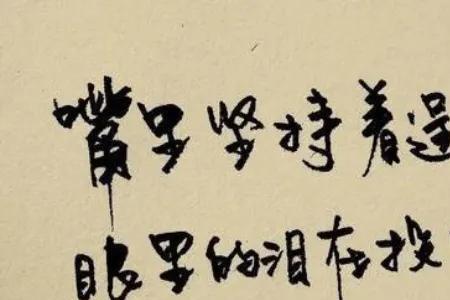 嘴里坚持着逞
眼里的泪在投